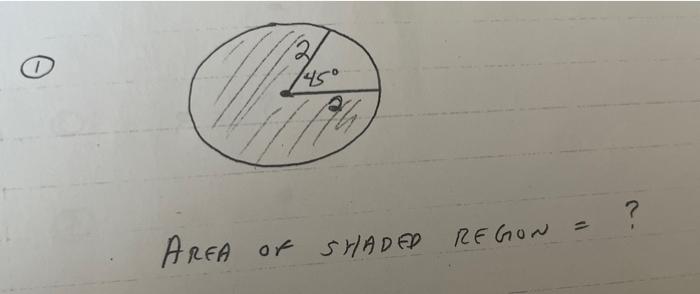 ①
2
45°
2
AREA OF SHADED REGION = ?